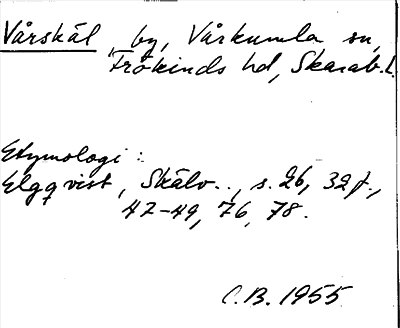 Vårskäl, by, Vårkumla sn,
Frökinds hd, Skarab. l.
Etymologi:
Elgqvist, Skälv.., s. 26, 32 f.,
47-49, 76, 78.
C.B. 1955